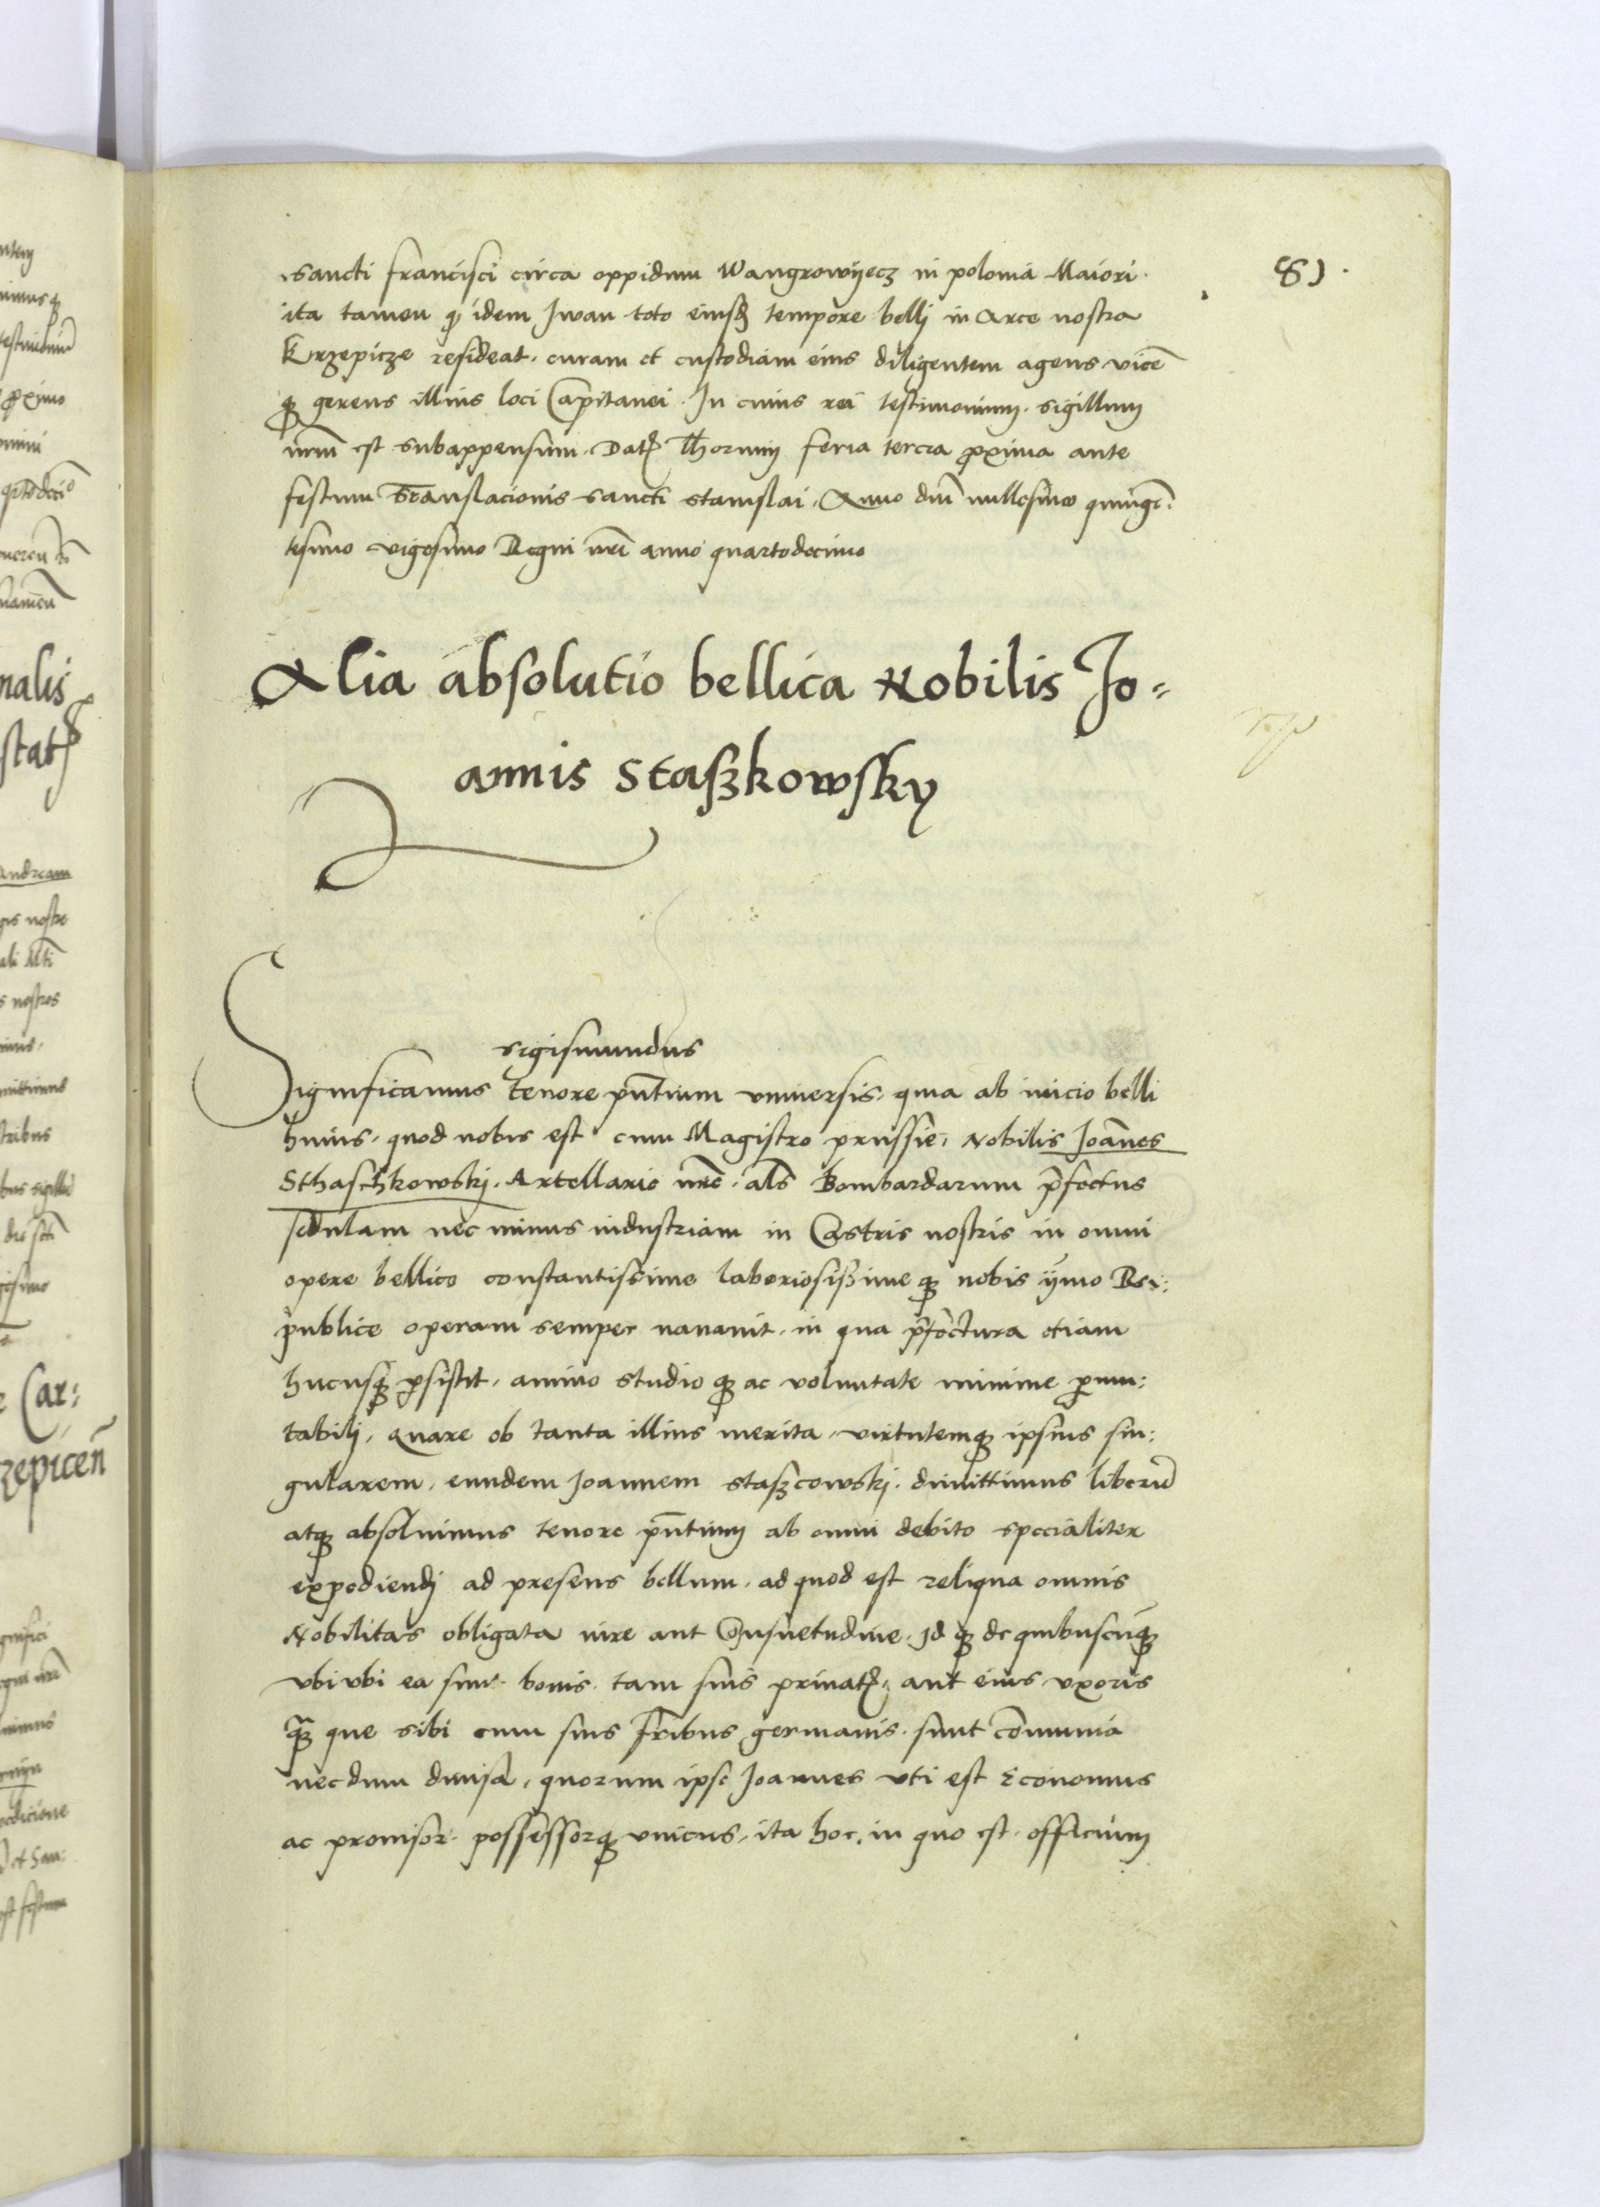 81.
sancti francisci circa oppidum Wangrowÿecz in polonia Maiori.
ita tamen qͥ idem Iwan toto eiusdꝫ tempore bellj in Arce nostra
Krzepicze resideat. curam et custodiam eius diligentem agens vicē
qꝫ gerens illius loci Capitanei. In cuius rei testimonium. sigillum
nrm̄ est subappensum. Datꝫ Thorunij feria tercia ꝓxima ante
festum Translacionis sancti stanislai. Anno dnī millesimo quingē:
tesimo vigesimo Regni nrī anno quartodecimo
Alia absolutio bellica Nobilis Jo=
annis Staszkowsky
sigismundus
Significamus tenore pn̄tium vniversis. quia ab inicio belli
huius. quod nobis est cum Magistro prussie, Nobilis Joānes
Sthaschkowskj. Artellarie nrē. als̄ Bombardarum p̄fectus
sedulam nec minus industriam in Castris nostris in omni
opere bellico constantissime laboriosissime qꝫ nobis ÿmo Rei:
publice operam semper navavit. in qua p̄fectura etiam
hucusqꝫ ꝑsistit. animo studio qꝫ ac voluntate minime ꝑmu:
tabilj. Quare ob tanta illius merita, virtutemqꝫ ipsius sin:
gularem, eundem Joannem staszcowskj. dimittimus liberū
atqꝫ absoluimus tenore pn̄tium ab omni debito specialiter
expediendj ad presens bellum. ad quod est reliqua omnis
Nobilitas obligata iure aut Consuetudine. Id qꝫ de quibuscūqꝫ
vbi vbi ea sint bonis. tam suis priuatꝫ, aut eius vxoris
qꝫ que sibi cum suis fribus germanis. sunt cōmunia
necdum diuisa, quorum ipse Joannes vti est Economus
ac prouisor. possessorqꝫ vnicus, ita hoc. in quo est. officium